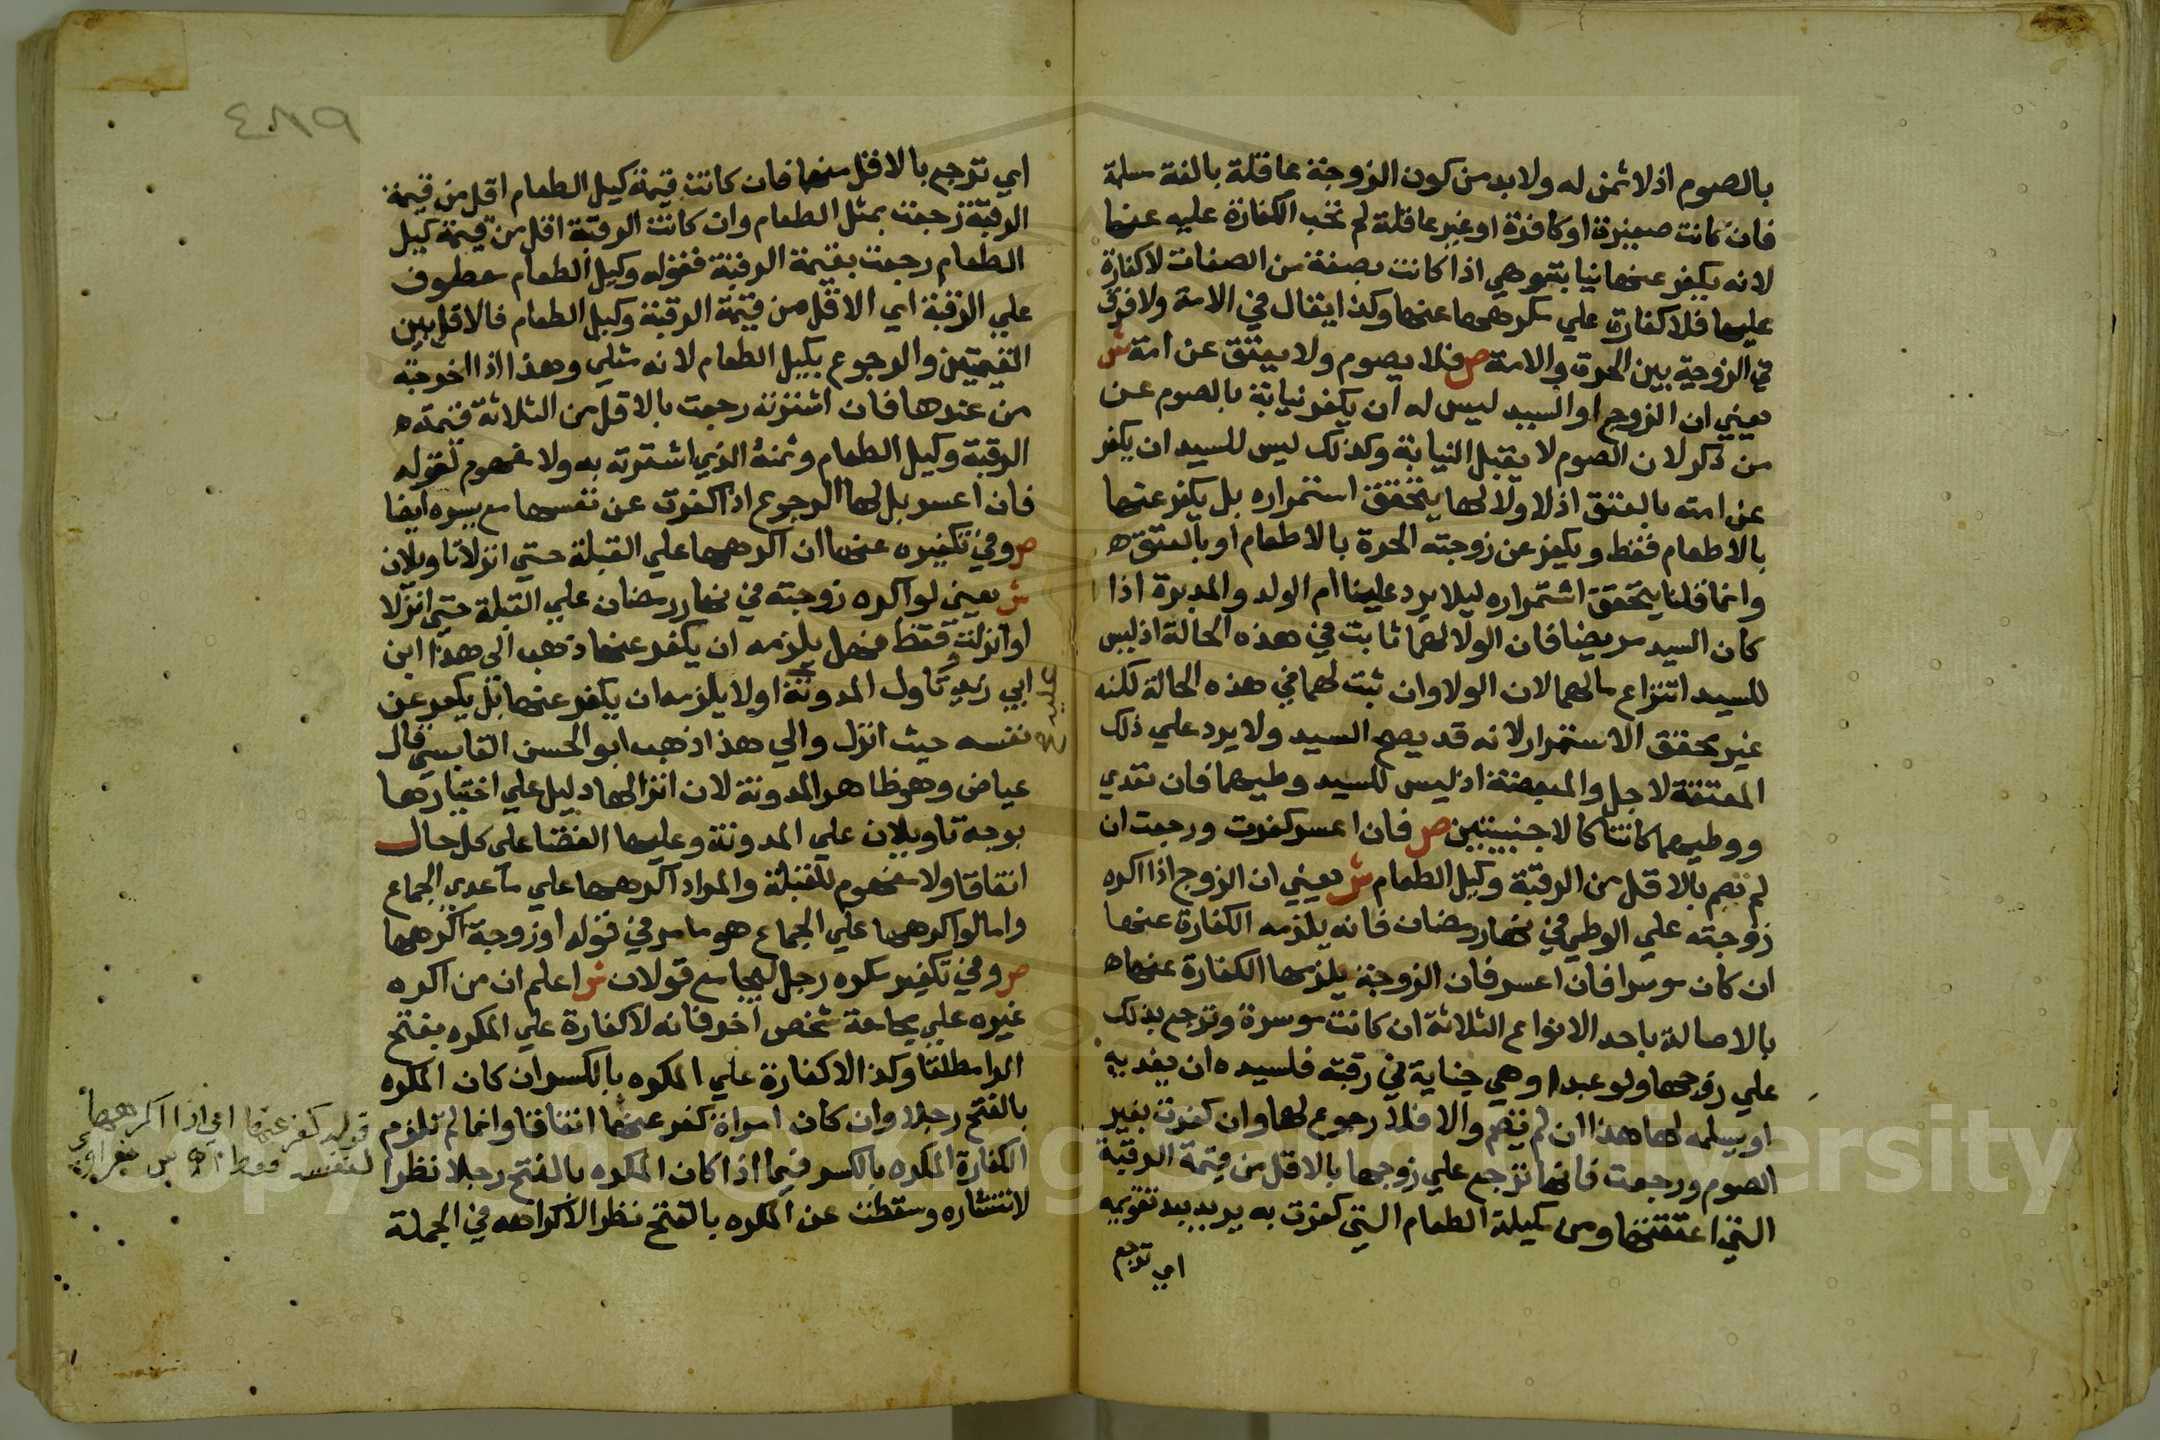 بالصوم اذ لا ثمن له ولا بد من كون الزوجة عاقلة بالغة مسلمة
فان كانت صغيرة او كافرة او غير عاقلة لم تجب الكفارة عليه عنها
لانه يكفر عنها نيابة وهي اذا كانت بصفة من الصفات لا كفارة
عليها فلا كفارة علي مكرهها عنها وكذا يقال في الامة ولا فرق
في الزوجية بين الحرة والامة ص فلا يصوم ولا يعتق عن امة ش
يعني ان الزوج او السيد ليس له ان يكفر نيابة بالصوم عن
من ذكر لان الصوم لا يقبل النيابة وكذلك ليس للسيد ان يكفر
عن امته بالعتق اذ لا ولا لها يتحقق استمراره بل يكفر عنها
بالاطعام فقط ويكفر عن زوجته الحرة بالاطعام او بالعتق ه
وانما قلنا يتحقق استمراره ليلا يرد علينا ام الولد والمدبرة اذا
كان السيد مريضا فان الولا لهما ثابت في هذه الحالة اذ ليس
للسيد انتزاع مالهما لان الولا وان ثبت لهما في هذه الحالة لكنه
غير محقق الاستمرار لانه قد يصح السيد ولا يرد علي ذلك
المعتقة لاجل والمبعضة اذ ليس للسيد وطيهما فان تعدي
ووطيهما كانتا كالاجنبيتين ص فان اعسر كفرت ورجعت ان
لم تصم بالاقل من الرقبة وكيل الطعام ش يعني ان الزوج اذا اكره
زوجته علي الوطي في نهار رمضان فانه يلزمه الكفارة عنها
ان كان موسرا فان اعسر فان الزوجة يلزمها الكفارة عنها ه
بالاصالة باحد الانواع الثلاثة ان كانت موسرة وترجع بذلك
علي زوجها ولو عبدا وهي جناية في رقبته فلسيده ان يفديه
او يسلمه لها هذا ان لم تصم والا فلا رجوع لها وان كفرت بغير
الصوم ورجعت فانها ترجع علي زوجها بالاقل من قيمة الرقبة
التي اعتقتها ومن كيلة الطعام التي كفرت به يريد بعد تقويمه
اي ترجع
٤٨٩
اي ترجع بالاقل منهما فان كانت قيمة كيل الطعام اقل من قيمة
الرقبة رجعت بمثل الطعام وان كانت الرقبة اقل من قيمة كيل
الطعام رجعت بقيمة الرقبة فقوله وكيل الطعام معطوف
علي الرقبة اي الاقل من قيمة الرقبة وكيل الطعام فالاقل بين
القيمتين والرجوع بكيل الطعام لانه مثلي وهذا اذا اخرجته
من عندها فان اشترته رجعت بالاقل من الثلاثة قيمة ه
الرقبة وكيل الطعام وثمنه الذي اشترته به ولا مفهوم لقوله
فان اعسر بل لها الرجوع اذا كفرت عن نفسها مع يسره ايضا
ص وفي تكفيره عنها ان اكرهها علي القبلة حتي انزلا تاويلان
ش يعني لو اكره زوجته في نهار رمضان علي القبلة حتي انزلا
او انزلت فقط فهل يلزمه ان يكفر عنها ذهب الي هذا ابن
ابي زيد تاول المدونة او لا يلزمه ان يكفر عنها بل يكفر عن
عليه
نفسه حيث انزل والي هذا ذهب ابو الحسن القابسي قال
عياض وهو ظاهر المدونة لان انزالها دليل علي اختيارها
بوجه تاويلان علي المدونة وعليها القضا علي كل حال
اتفاقا ولا مفهوم للقبلة والمراد اكرهها علي ما عدي الجماع
واما لو اكرهها علي الجماع هو ما مر في قوله او زوجة اكرهها
ص وفي تكفير مكره رجل ليجامع قولان ش اعلم ان من اكره
غيره علي مجامعة شخص اخر فانه لا كفارة علي المكره بفتح
الرا مطلقا وكذا لا كفارة علي المكره بالكسر ان كان المكره
بالفتح رجلا وان كان امراة كفر عنها اتفاقا وانما لم تلزم
الكفارة المكره بالكسر فيما اذا كان المكره بالفتح رجلا نظرا
لانتشاره وسقطت عن المكره بالفتح نظرا لاكراهه في الجملة
قوله كفر عنها اي اذا اكرهها
لنفسه فقط
Copyright © King Saud University